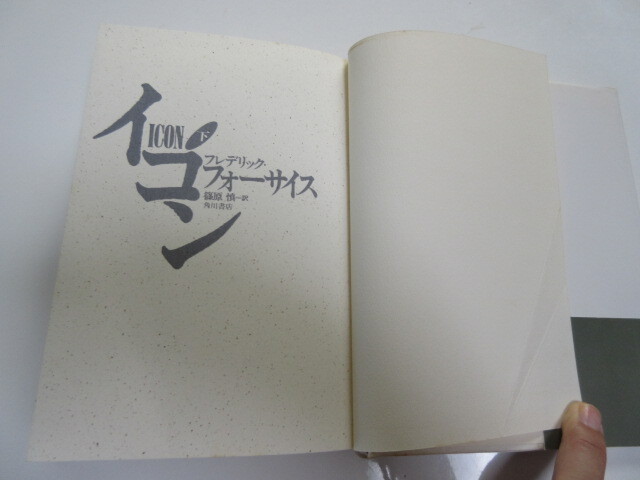 イコン
ICON
下
フレデリック・
フォーサイス
篠原 慎=訳
角川書店